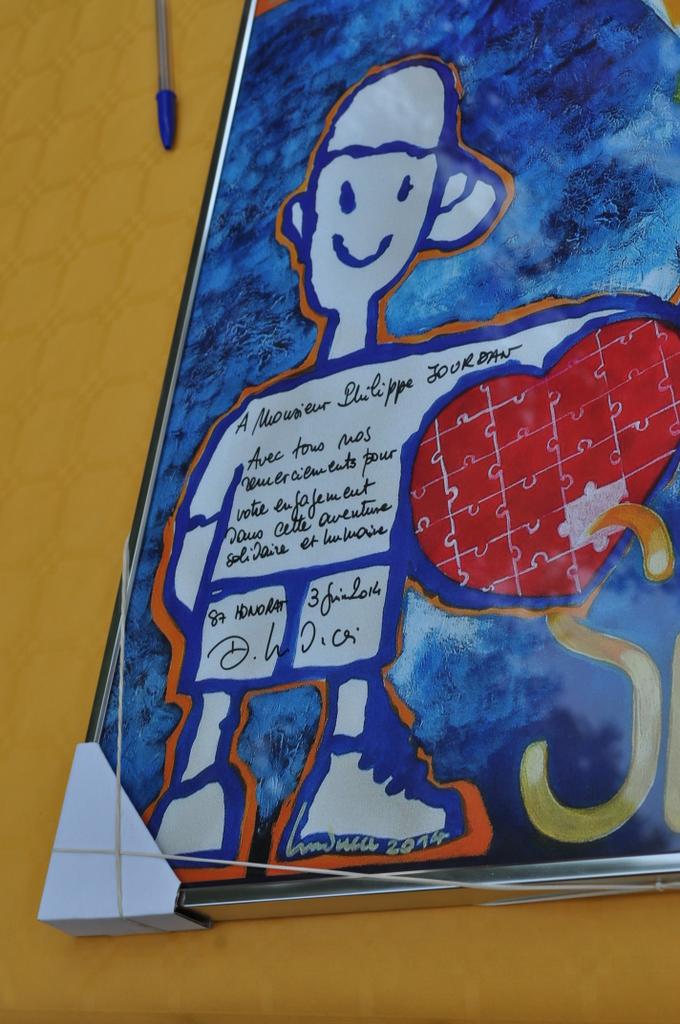 A Monsieur Philippe JOURDAN
Avec tous nos
remerciements pour
votre engagement
Dans cette aventure
solidaire et humaine
St HONORAT 3 Juin 2014
2014